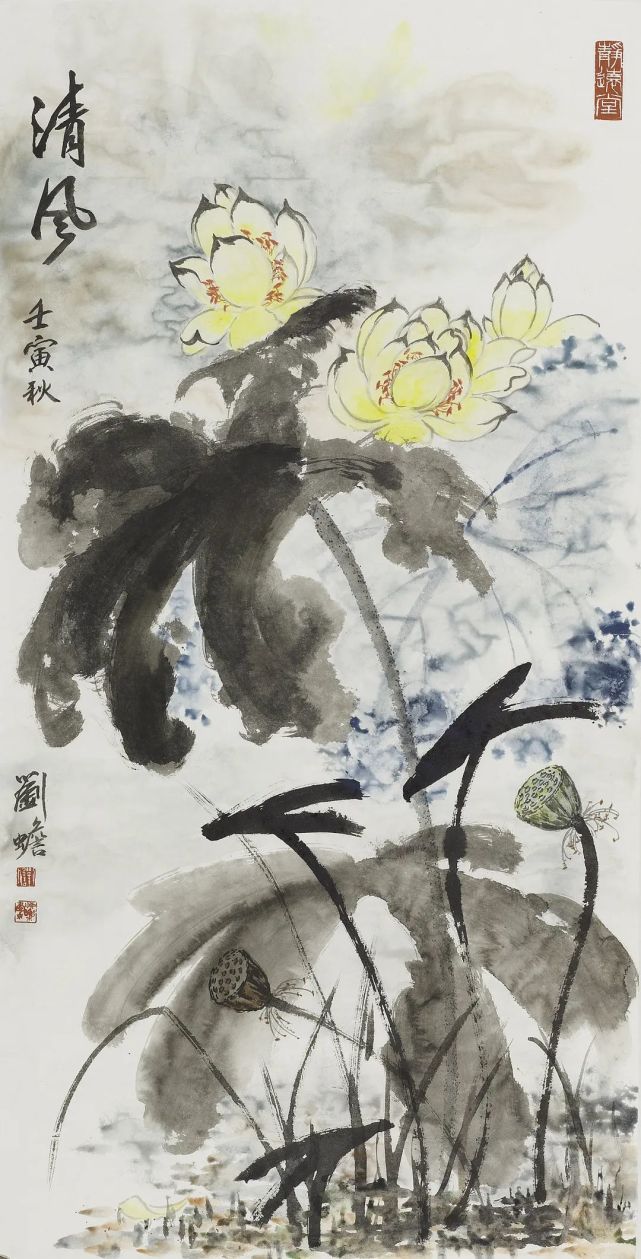 清風
壬寅秋
劉蟾
靜遠堂